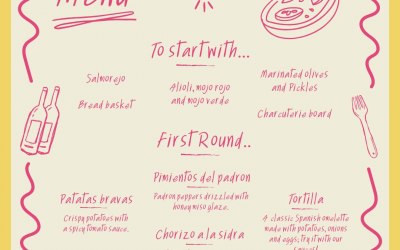 Menu
To start with...
Salmorejo
Bread basket
Alioli, mojo rojo
and mojo verde
Marinated olives
and Pickles
Charcuterie board
First Round..
Pimientos del padron
Padron peppers drizzled with
honey miso glaze.
Patatas bravas
Crispy potatoes with
a spicy tomato sauce.
Tortilla
A classic Spanish omelette
made with potatoes, onions
and eggs, try it with our
Chorizo a la sidra